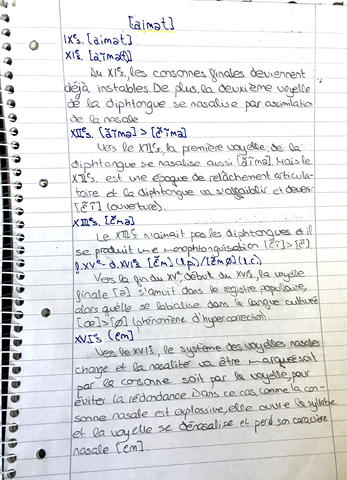 [aimǝt]
IXe s. [aimǝt]
XIe s. [aĩmǝ(t)]
Au XIe s., les consonnes finales deviennent
déjà instables. De plus, la deuxième voyelle
de la diphtongue se nasalise par assimilation
de la nasale
XIIe s. [ãĩmǝ] > [ẽĩmǝ]
Vers le XIIe s, la première voyelle de la
diphtongue se nasalise aussi [ãĩmǝ]. Mais le
XIIe s. est une époque de relâchement articula-
toire et la diphtongue va s'affaiblir et devenir
[ẽĩ] (ouverture).
XIIIe s. [ẽmǝ]
Le XIIIe s n'aimait pas les diphtongues et il
se produit une monophtonguisation [ẽĩ] > [ẽ]
f. XVe - d. XVIe s. [ẽm] (r.p.) / [ẽmø] (l.c.)
Vers la fin du XVe début du XVIe, la voyelle
finale [ǝ] s'amuit dans le registre populaire,
alors qu'elle se labialise dans la langue cultivée
[œ] > [ø] (phénomène d'hypercorrection).
XVIe s [ɛm]
Vers le XVIe s, le système des voyelles nasales
change et la nasalité va être marquée soit
par la consonne soit par la voyelle, pour
éviter la rédondance. Dans ce cas, comme la con-
sonne nasale est explosive, elle ouvre la syllabe
et la voyelle se dénasalise et perd son caractère
nasale [ɛm].